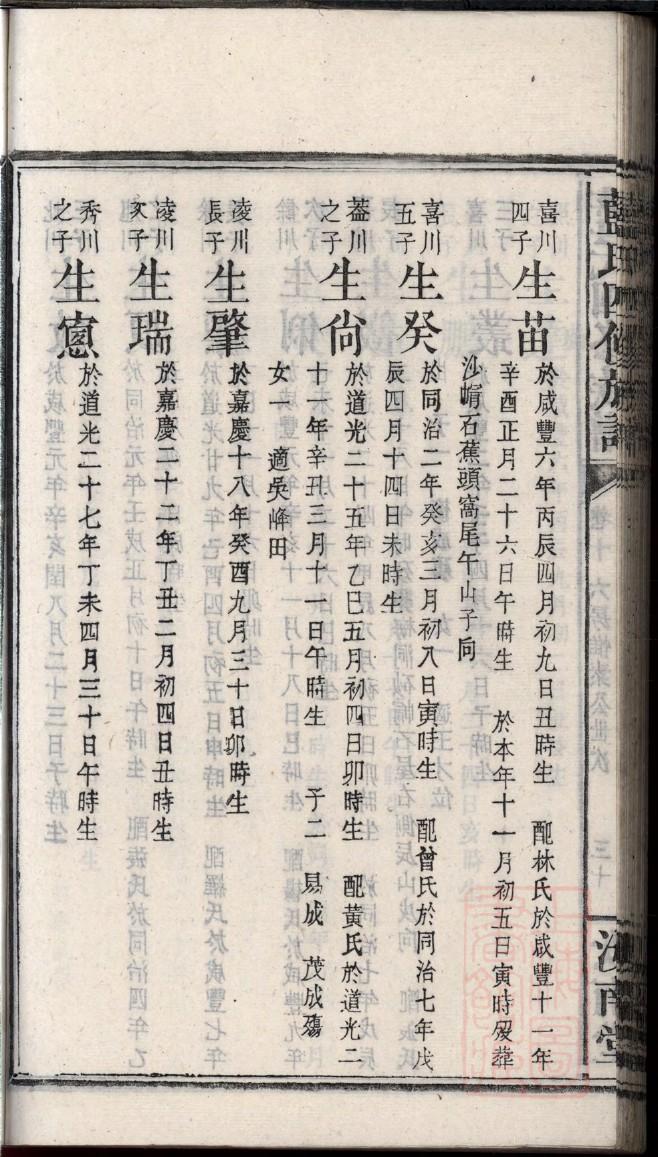 藍氏四修族譜
卷十六易惟榮公世次
三十
汝南堂
喜川四子 生苗 於咸豐六年丙辰四月初九日丑時生 配林氏於咸豐十一年
辛酉正月二十六日午時生 於本年十一月初五日寅時歿葬
沙帽石蕉頭窩尾午山子向
喜川五子 生癸 於同治二年癸亥三月初八日寅時生 配曾氏於同治七年戊
辰四月十四日未時生
蓋川之子 生尙 於道光二十五年乙巳五月初四日卯時生 配黃氏於道光二
十一年辛丑三月十一日午時生 子二 易成 茂成殤
女一 適吳峰田
凌川長子 生肇 於嘉慶十八年癸酉九月三十日卯時生
凌川次子 生瑞 於嘉慶二十二年丁丑二月初四日丑時生
秀川之子 生寬 於道光二十七年丁未四月三十日午時生